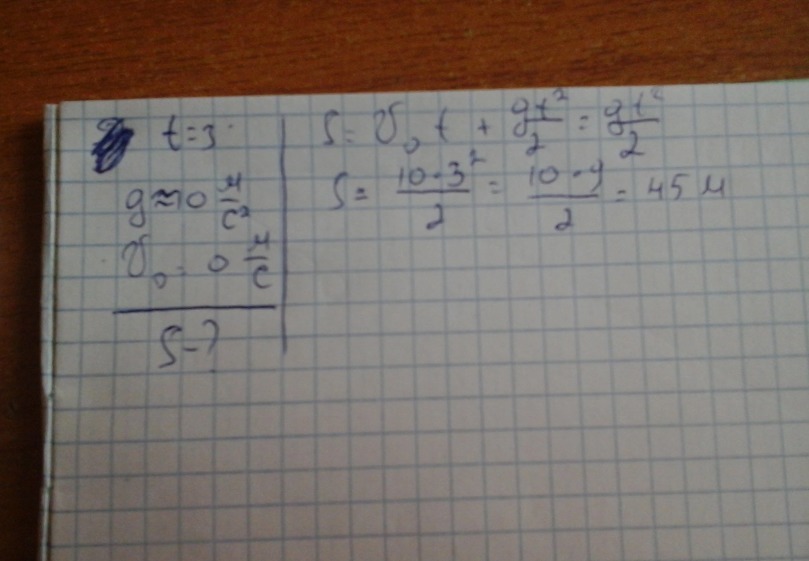 t=3
g≈10 м/с²
V₀=0 м/с
S-?
S=V₀t+gt²/2=gt²/2
S=10·3²/2=10·9/2=45 м